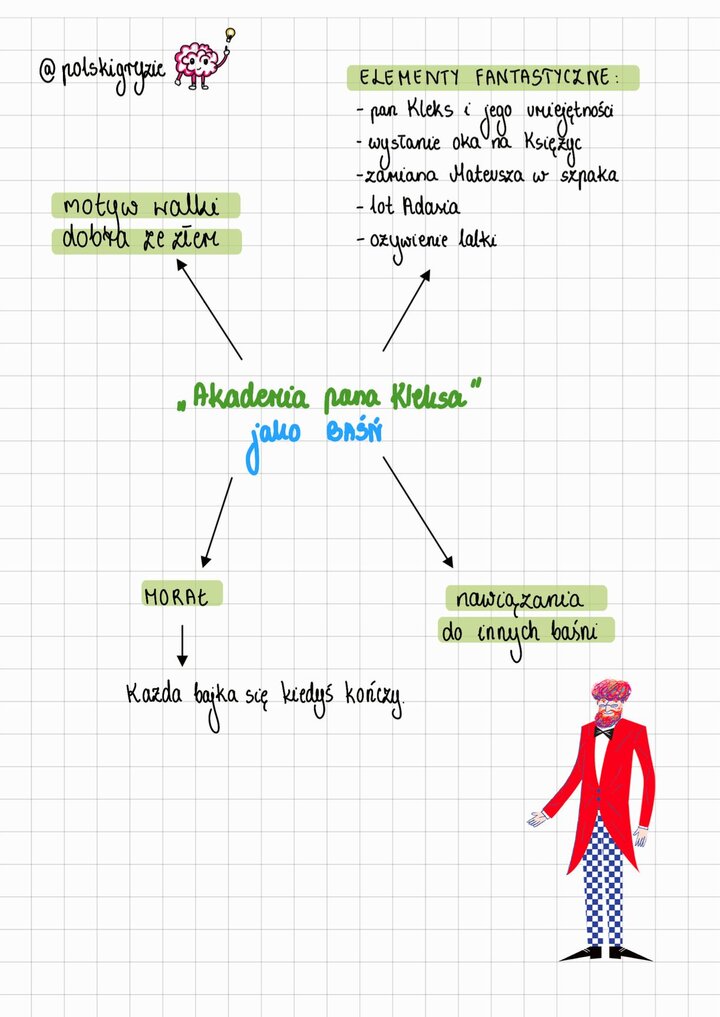 @polskigryzie
ELEMENTY FANTASTYCZNE:
- pan Kleks i jego umiejętności
- wysłanie oka na Księżyc
- zamiana Mateusza w szpaka
- lot Adasia
- ożywienie lalki
motyw walki
dobra ze złem
„Akademia pana Kleksa"
jako BAŚŃ
MORAŁ
Każda bajka się kiedyś kończy.
nawiązania
do innych baśni